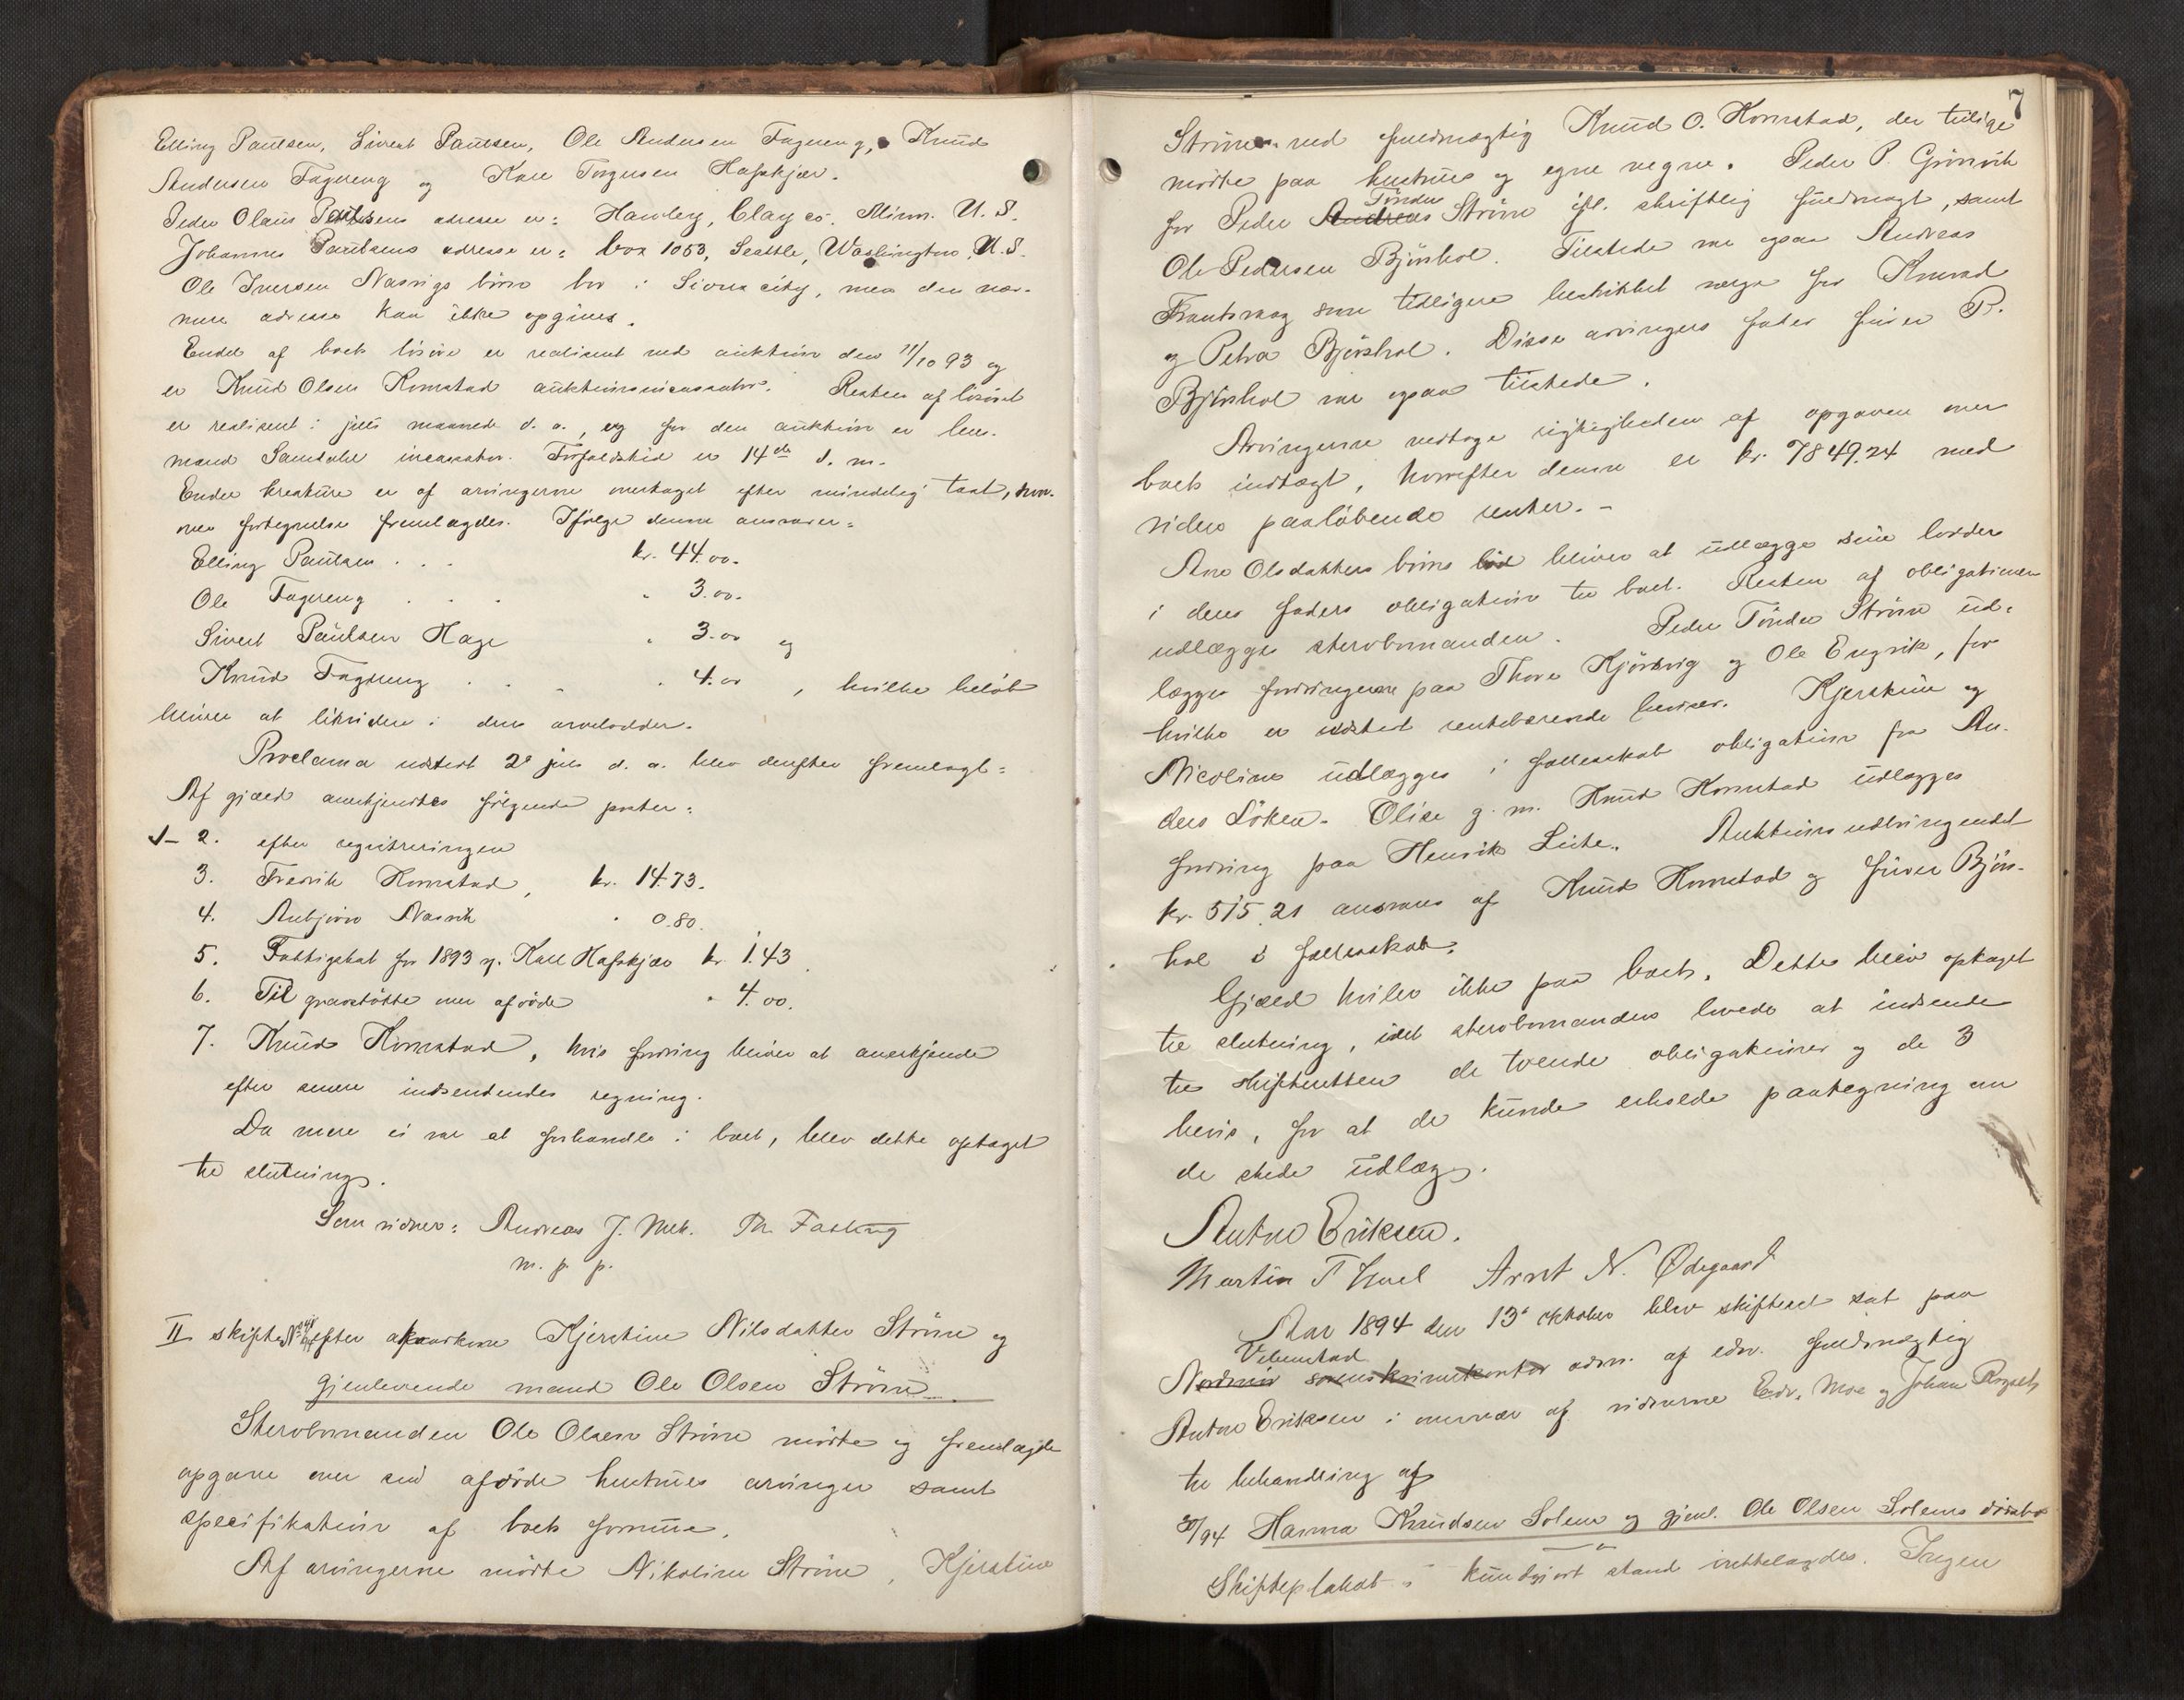 Elling Paulsen, Sivert Paulsen, Ole Andersen Fagereng, Knud
Andersen Fagereng og Karl Torgersen Hafskjær.
Peder Olaus Paulsens adresse er: Hawley, Clay co. Minn. U. S.
Johannes Paulsens adresse er: box 1053, Seattle, Washington, U. S.
Ole Iversen Nasvigs børn bor i Sioux city, men den nær-
mere adresse kan ikke opgives.
Endel af boets løsøre er realiseret ved auktion den 11/10 93 og
er Knud Olsen Kornstad auktionsincassator. Resten af løsøret
er realiseret i juli maaned d. a., og for den auktion er lens-
mand incassator. Forfaldstid er 14de d. m.
Endel kreature er af arvingerne overtaget efter mindelig taxt, hvor-
over fortegnelse fremlagdes. Ifølge denne ansvarer:
Elling Paulsen . . . kr. 44.00.
Ole Fagereng . . . " 3.00.
Sivert Paulsen Hage " 3.00 og
Knud Fagereng . . . " 4.00, hvilke beløb
bliver at likvidere i deres arvelodder.
Proclama udstedt 2' juli d. a. blev derefter fremlagt:
Af gjæld anerkjendtes følgende poster:
1-2. efter registreringen
3. Fredrik Kornstad, kr. 14.73.
4. Anbjørn Nasvik " 0.80.
5. Fattigskat for 1893 v. Karl Hafskjær kr 1.43.
6. Til gravstøtte over afdøde " 4.00.
7. Knud Kornstad, hvis fordring bliver at anerkjende
efter senere indsendendes regning.
Da mere ei var at forhandle i boet, blev dette optaget
til slutning.
Som vidner: Andreas J. Mek. Th. Fasting
m. p. p.
II skifte efter afkaarkone Kjerstine Nilsdatter Strøm og
gjenlevende mand Ole Olsen Strøm.
Stervbomanden Ole Olsen Strøm mødte og fremlagde
opgave over sin afdøde hustrues arvinger samt
specifikation af boets formue.
Af arvingerne mødte Nikoline Strøm, Kjerstine
7
Strøm ved fuldmægtig Knud O. Kornstad, der tillige
mødte paa hustrues og egne vegne. Peder P. Grønvik
for Peder Andreas Tønder Strøm ifl. skriftlig fuldmagt, samt
Ole Pedersen Bjørshol. Tilstede var ogsaa Andreas
Frantsvaag som tidligere beskikket værge for Konrad
og Petra Bjørshol. Disse arvingers fader Iver P.
Bjørshol var ogsaa tilstede.
Arvingerne vedtoge rigtigheden af opgaven over
boets indtægt, hvorefter denne er kr. 7849.24 med
videre paaløbende renter. -
Ane Olsdatters børns lod bliver at udlægge sine lodder
i deres faders obligation til boet. Resten af obligationen
udlægges stervbomanden. Peder Tønder Strøm ud-
lægges fordringerne paa Thore Kjørsvig og Ole Engvik, for
hvilke er udstedt rentebærende beviser. Kjerstine og
Nicoline udlægges i fællesskab obligation fra An-
ders Løken. Olise g. m. Knud Kornstad udlægges
fordring paa Henrik Leite. Auktionsudbringendet
kr. 515.21 ansvares af Knud Kornstad og Iver Bjørs-
hol i fællesskab.
Gjæld hviler ikke paa boet. Dette blev optaget
til slutning, idet stervbomanden lovede at indsende
til skifteretten de tvende obligationer og de 3
bevis, for at de kunde erholde paategning om
de skede udlæg.
Anton Eriksen.
Martin T Arnt N. Ødegaard
Aar 1894 den 13' oktober blev skifteret sat paa
Nordmør sorenskriverkontor Vebenstad adm. af edsv. fuldmægtig
Anton Eriksen i overvær af vidnerne Edv. Moe og Johan
til behandling af
30/94 Hanna Knudsen Solem og gjenl. Ole Olsen Solems dødsbo
Skifteplakat i kundgjort stand irettelagdes. Ingen